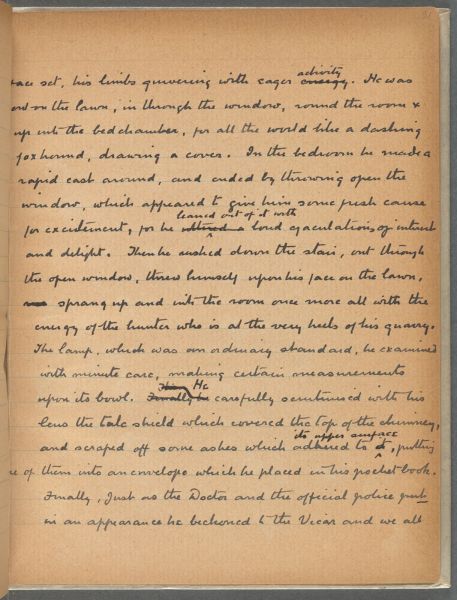 face set, his limbs quivering with eager energy activity. He was
out on the lawn, in through the window, round the room &
up into the bedchamber, for all the world like a dashing
foxhound, drawing a cover. In the bedroom he made a
rapid cast around, and ended by throwing open the
window, which appeared to give him some fresh cause
for excitement, for he uttered a leaned out of it with loud ejaculations of interest
and delight. Then he rushed down the stair, out through
the open window, threw himself upon his face on the lawn,
sprang up and into the room once more all with the
energy of the hunter who is at the very heels of his quarry.
The lamp, which was an ordinary standard, he examined
with minute care, making certain measurements
upon its bowl. Finally he He carefully scrutinised with his
lens the talc shield which covered the top of the chimney,
and scraped off some ashes which adhered to it its upper surface, putting
of them into an envelope which he placed in his pocket book.
Finally, Just as the Doctor and the official police put
in an appearance he beckoned to the Vicar and we all